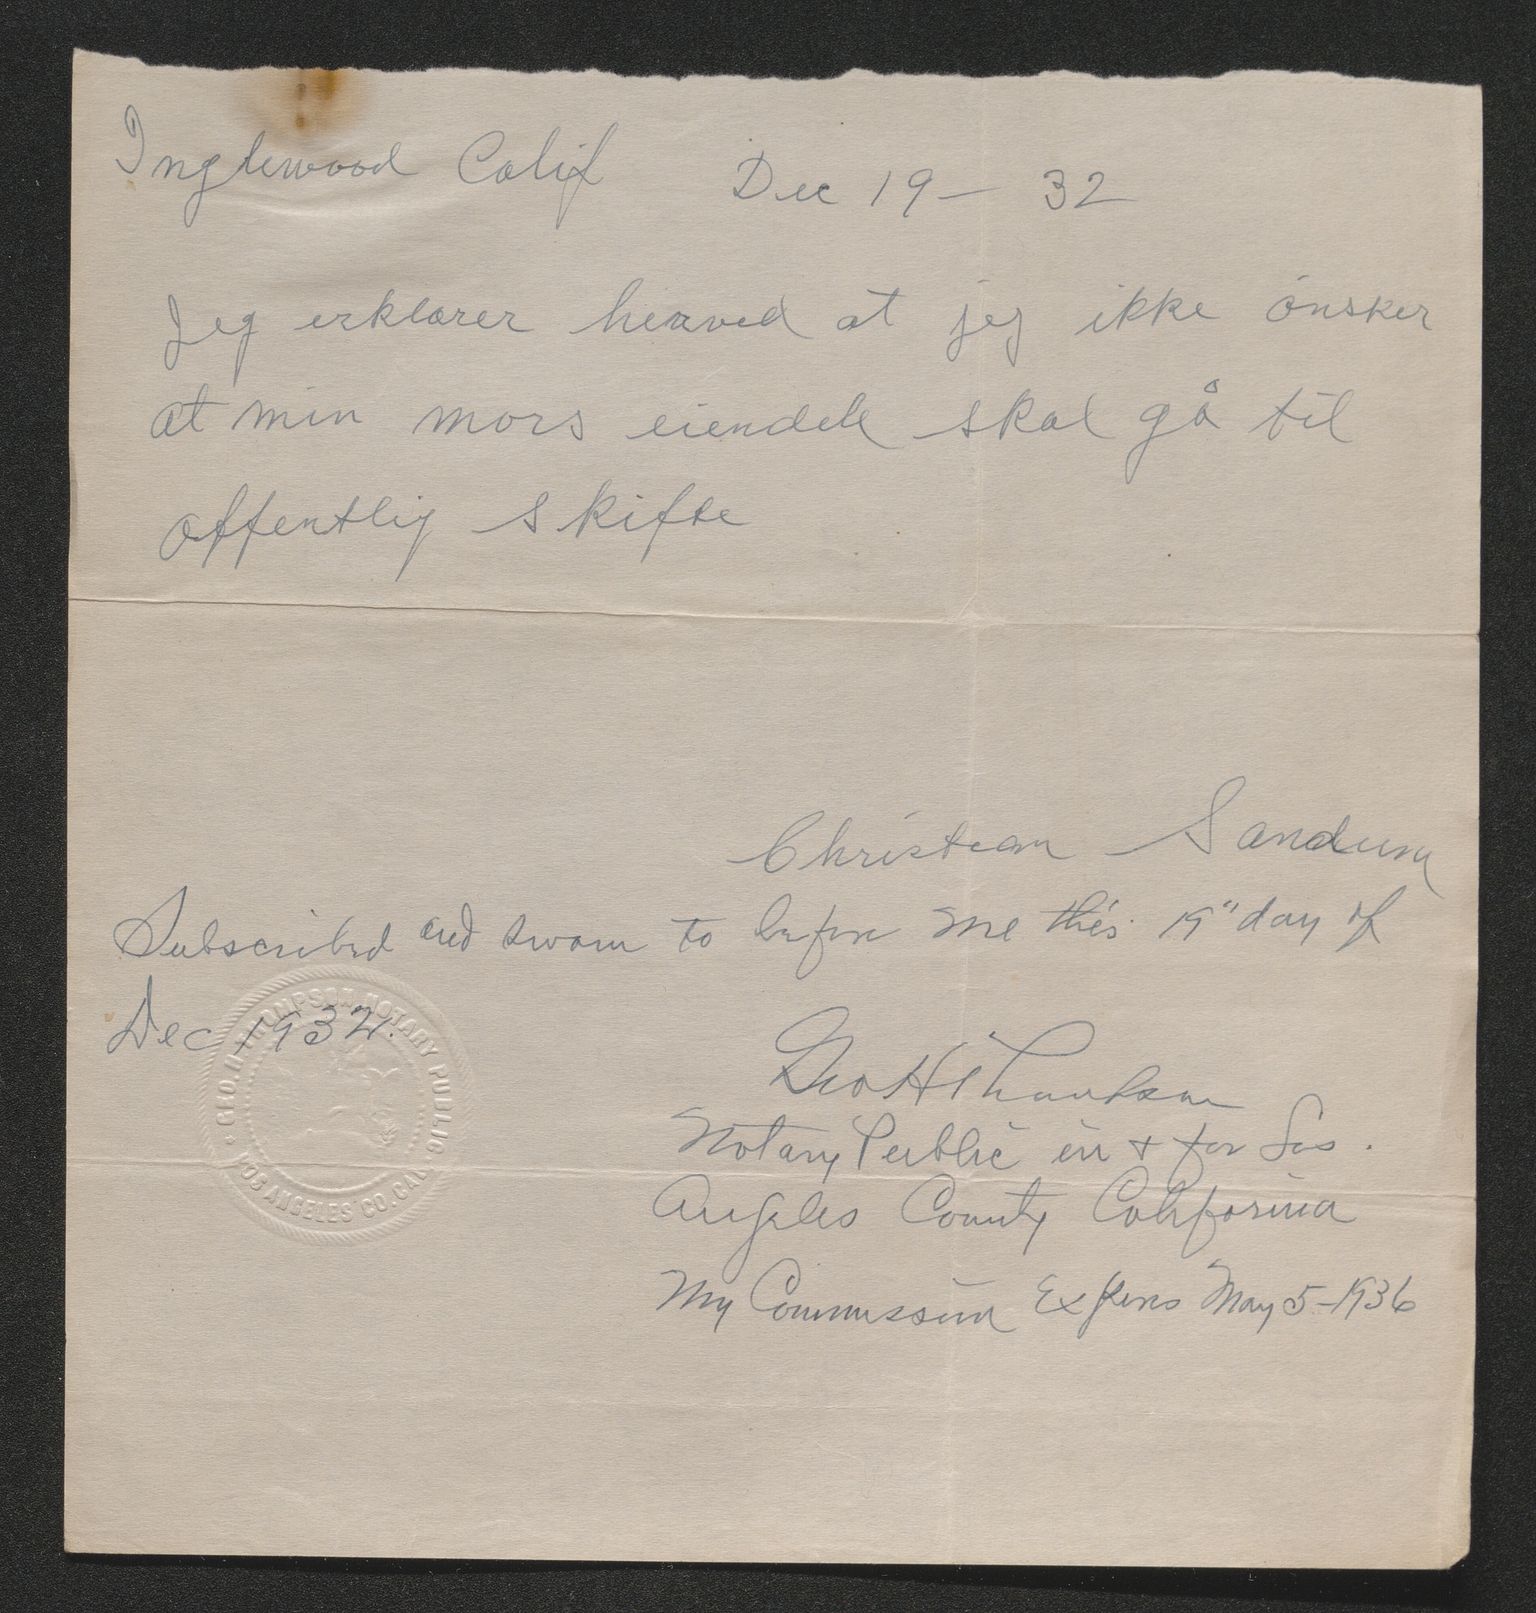 Inglewood Calif Dec 19 - 32
Jeg erklærer herved at jeg ikke ønsker
at min mors eiendele skal gå til
offentlig skifte
Christian Sandum
Subscribed and sworn to before me this 19" day of
Dec 1932.
GEO. H. THOMPSON NOTARY PUBLIC
LOS ANGELES CO. CAL.
Geo H Thompson
Notary Public in + for Los
Angeles County California
My Commission Expires May 5-1936